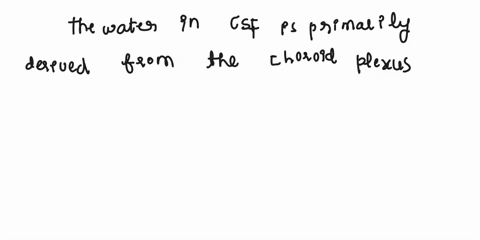 the water in CSF is primarily
derived from the choroid plexus